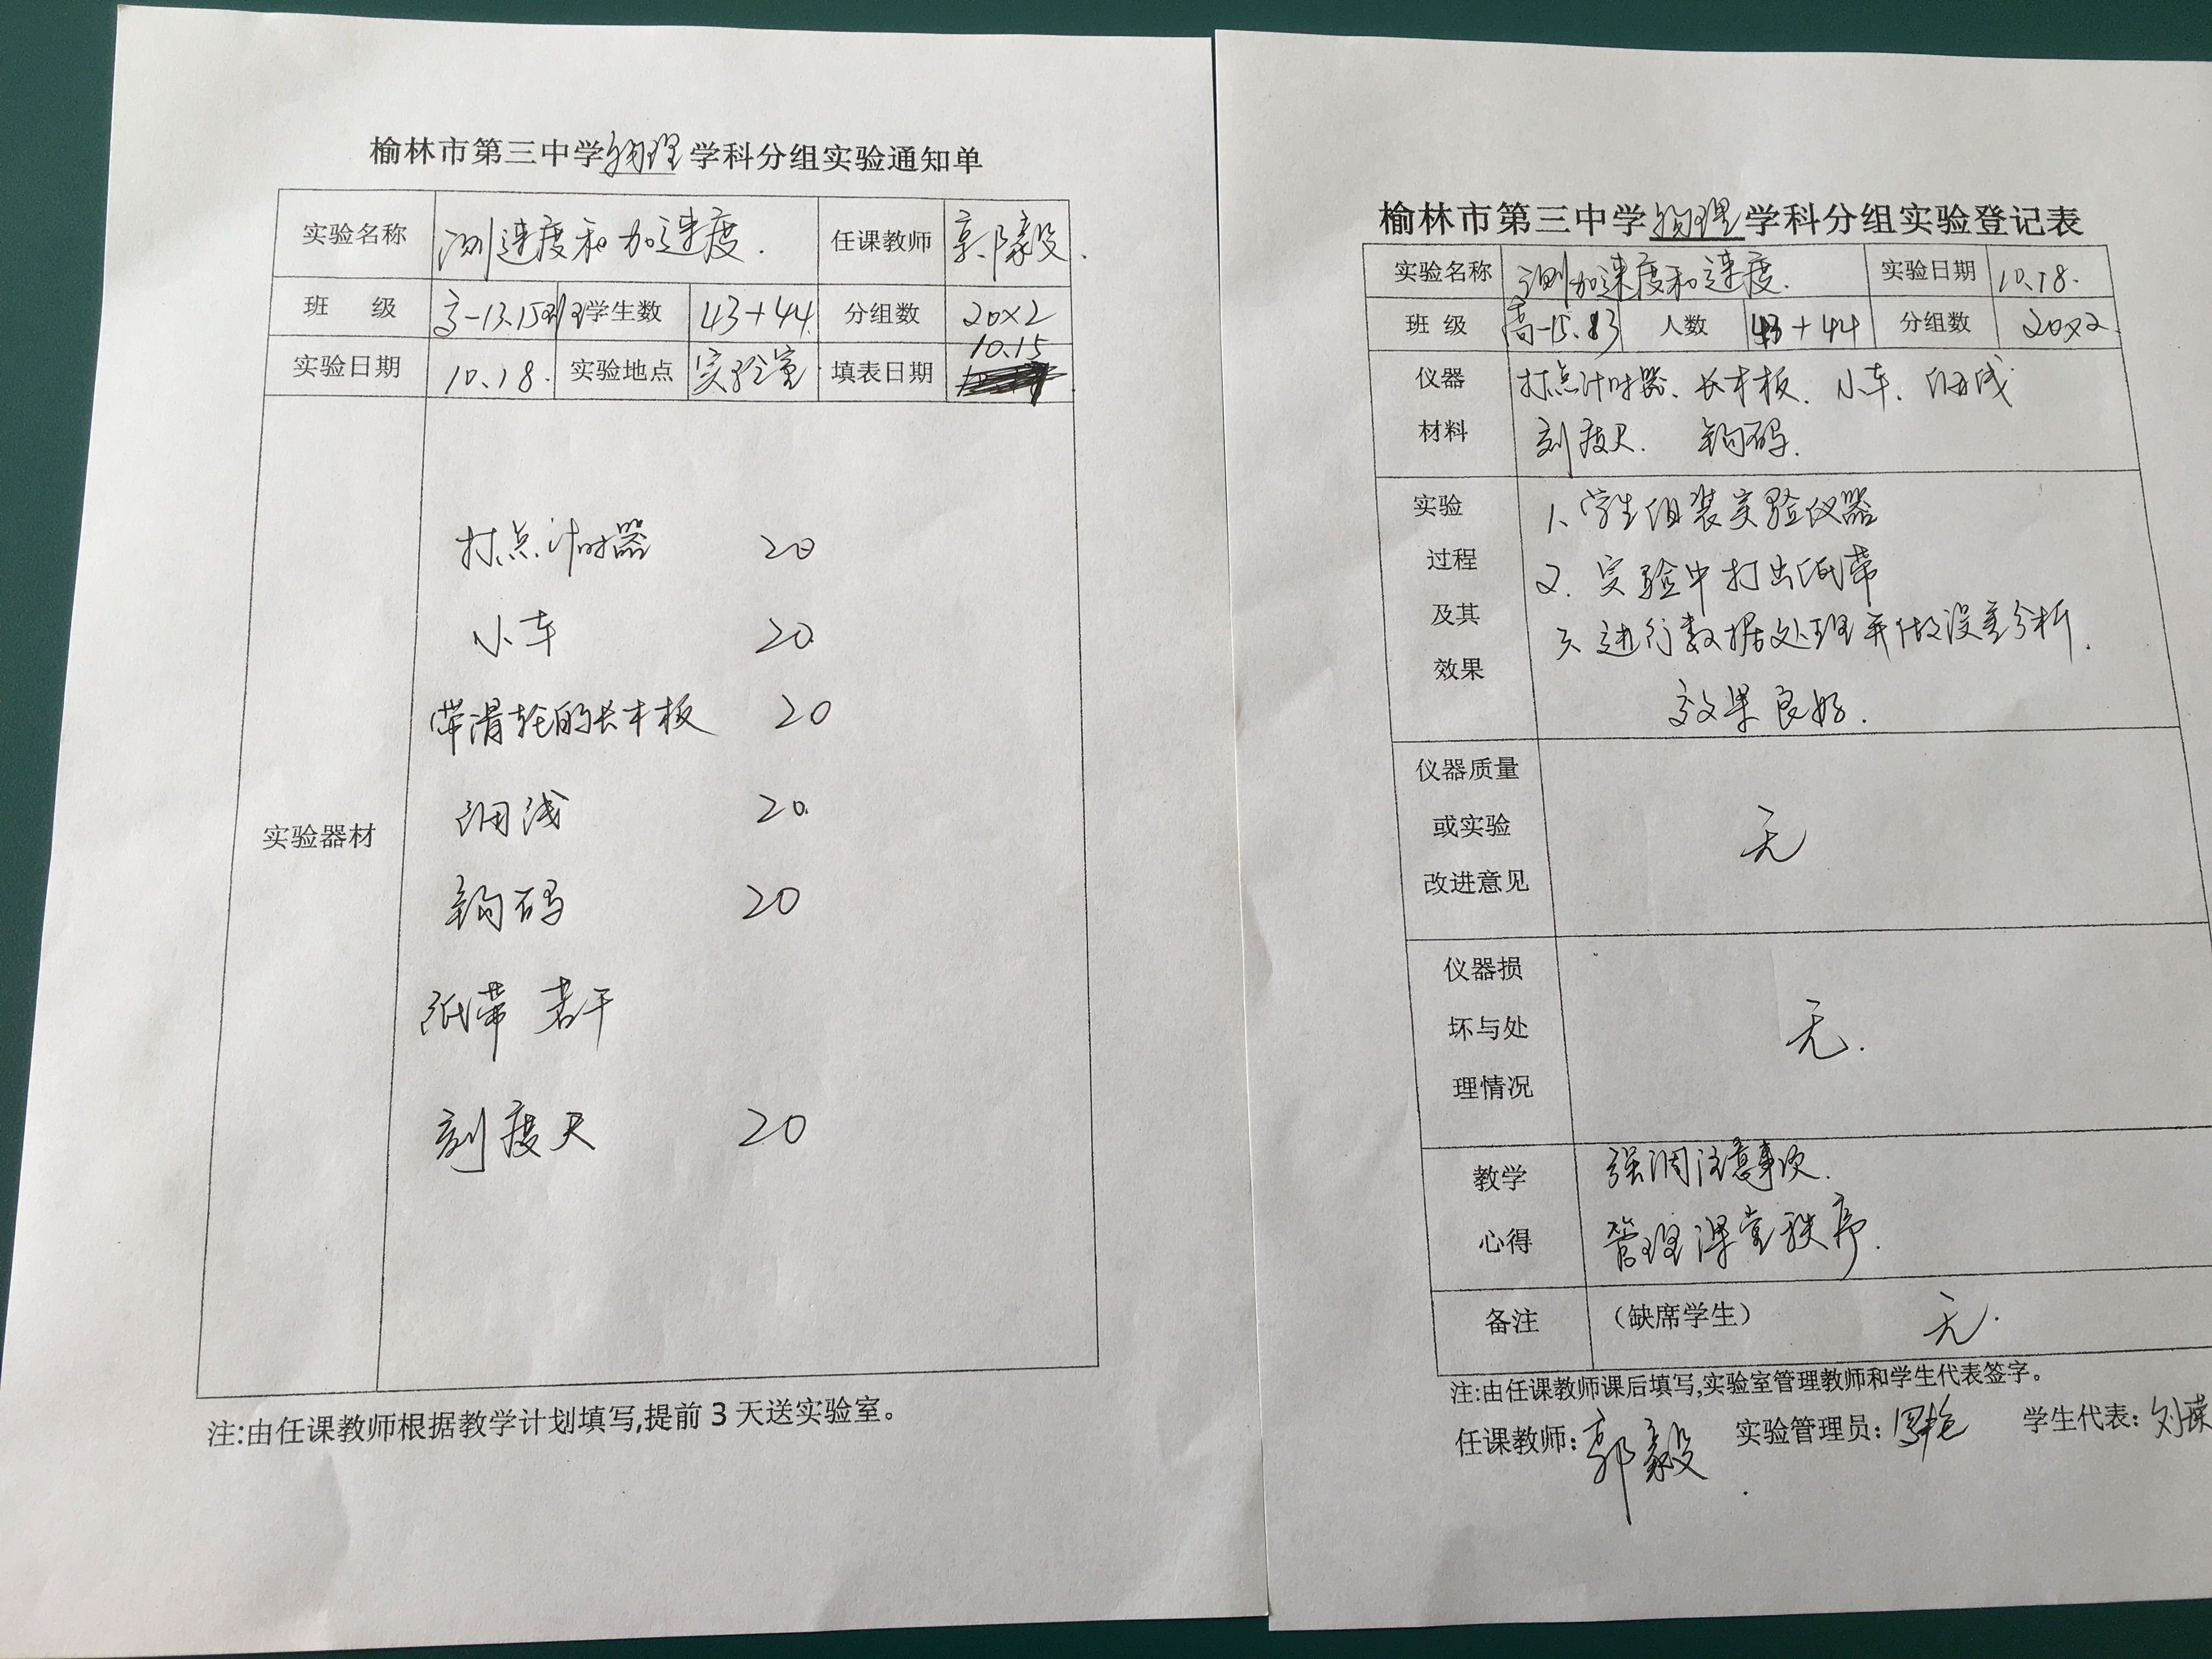 榆林市第三中学物理学科分组实验通知单
实验名称 测速度和加速度. 任课教师 郭毅.
班 级 高一13.15班 学生数 43+44 分组数 20×2
实验日期 10.18. 实验地点 实验室 填表日期 10.15
实验器材
打点计时器 20
小车 20
带滑轮的长木板 20
细线 20
钩码 20
纸带 若干
刻度尺 20
注:由任课教师根据教学计划填写,提前3天送实验室。
榆林市第三中学物理学科分组实验登记表
实验名称 测加速度和速度. 实验日期 10.18.
班 级 高一15.13 人数 43+44 分组数 20×2.
仪器材料 打点计时器、长木板、小车、细线
刻度尺. 钩码.
实验过程及其效果
1、学生组装实验仪器
2.实验中打出纸带
3、进行数据处理并做误差分析.
效果良好.
仪器质量或实验改进意见 无
仪器损坏与处理情况 无.
教学心得 强调注意事项.
管理课堂秩序.
备注 （缺席学生） 无.
注:由任课教师课后填写,实验室管理教师和学生代表签字。
任课教师: 郭毅 实验管理员: 学生代表: 刘